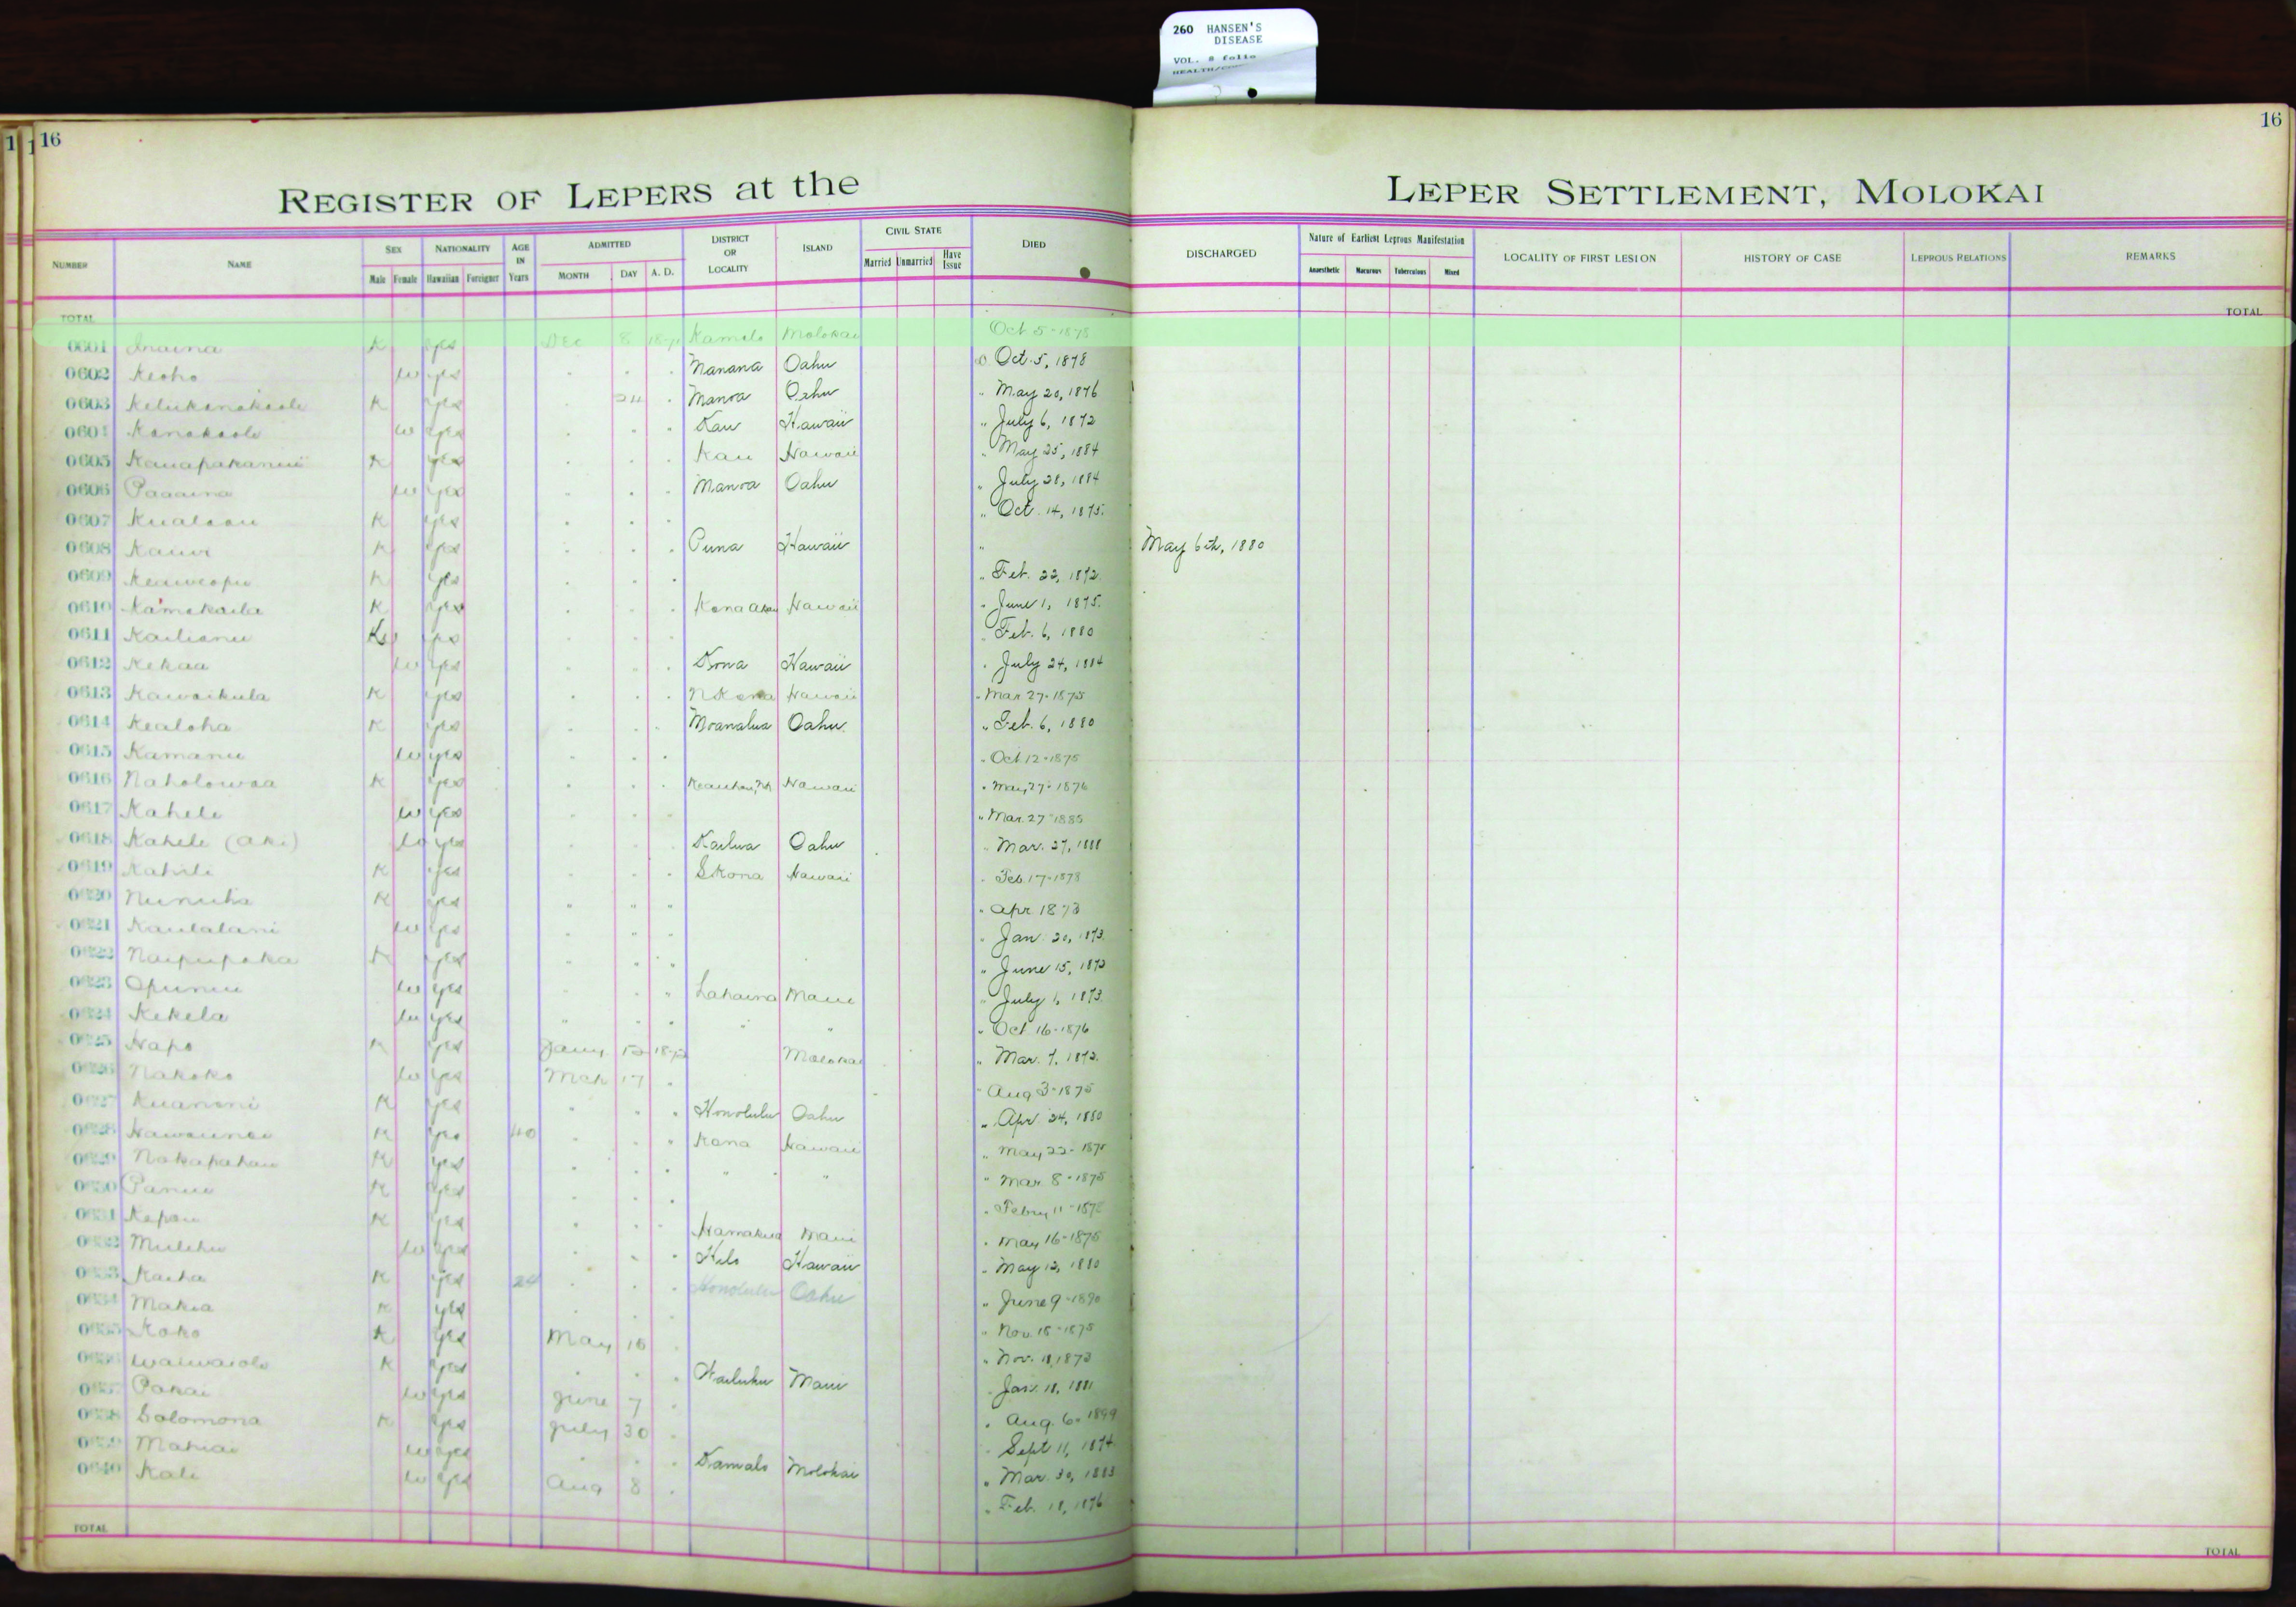 260 HANSEN'S
DISEASE
VOL. 8 folio
16
16
REGISTER OF LEPERS at the
LEPER SETTLEMENT, MOLOKAI
NUMBER NAME SEX Male Female NATIONALITY Hawaiian Foreigner AGE IN Years ADMITTED MONTH DAY A. D. DISTRICT OR LOCALITY ISLAND CIVIL STATE Married Unmarried Have Issue DIED DISCHARGED Nature of Earliest Leprous Manifestation Anaesthetic Macurous Tuberculous Mixed LOCALITY OF FIRST LESION HISTORY OF CASE LEPROUS RELATIONS REMARKS
TOTAL TOTAL
0601 Inaina K yes Dec 8 Kamalo Molokai Oct 5-1878
0602 Keoho w yes Manana Oahu Oct. 5, 1878
0603 K yes 24 " Manoa Oahu " May 20, 1876
0604 Kanakaole w yes Kau Hawaii " July 6, 1872
0605 K yes Kau Hawaii " May 25, 1884
0606 Paaaina w yes Manoa Oahu " July 28, 1884
0607 Kualaau K yes " Oct. 14, 1875.
0608 Kauwe K yes Puna Hawaii " May 6th, 1880
0609 Keaweopu K yes " Feb. 22, 1872.
0610 Kamakaila K yes Kona Akau Hawaii " June 1, 1875.
0611 Kailianu yes Feb. 6, 1880
0612 Kekaa w yes Kona Hawaii " July 24, 1884
0613 Kawaikula K yes N Kona Hawaii " Mar 27-1875
0614 Kealoha K yes Moanalua Oahu " Feb. 6, 1880
0615 Kamanu w yes " Oct 12-1875
0616 Naholowaa K yes Hawaii " May 27-1876
0617 Kahele w yes " Mar. 27-1885
0618 Kahele (aki) w yes Kailua Oahu Mar. 27, 1888
0619 Kahili K yes S Kona Hawaii Feb. 17-1878
0620 K yes " " " " Apr 1873
0621 Kaulalani w yes " " Jan. 20, 1873.
0622 Naipupaka K yes " June 15, 1873
0623 Opunui w yes Lahaina Maui " July 1, 1873.
0624 Kekela w yes " " " Oct 16-1876
0625 Napo K yes Jany 1872 Molokai " Mar. 7, 1872.
0626 Nakoko w yes Mch 17 Aug 3-1875
0627 Kuanoni K yes Honolulu Oahu " Apr. 24, 1880
0628 K yes 40 Kona Hawaii " May 22-1875
0629 Nakapahau K yes " " " Mar. 8-1875
0630 Panui K yes Febry 11-1875
0631 Kapau K yes Hamakua Maui " May 16-1875
0632 Mulehu w yes Hilo Hawaii " May 12, 1880
0633 Kaiha K yes 24 Honolulu Oahu " June 9-1890
0634 Makia K yes " Nov. 18-1875
0635 Koko K yes May 16 " Nov. 11, 1873
0636 Waiwaiole K yes Wailuku Maui Jan. 18, 1881
0637 Pakai w yes June 7 " Aug. 6. 1899
0638 Solomona K yes July 30 Sept 11, 1874
0639 Mahiai w yes Kamalo Molokai " Mar. 30, 1883
0640 Kali w yes Aug 8 Feb. 18, 1876
TOTAL TOTAL